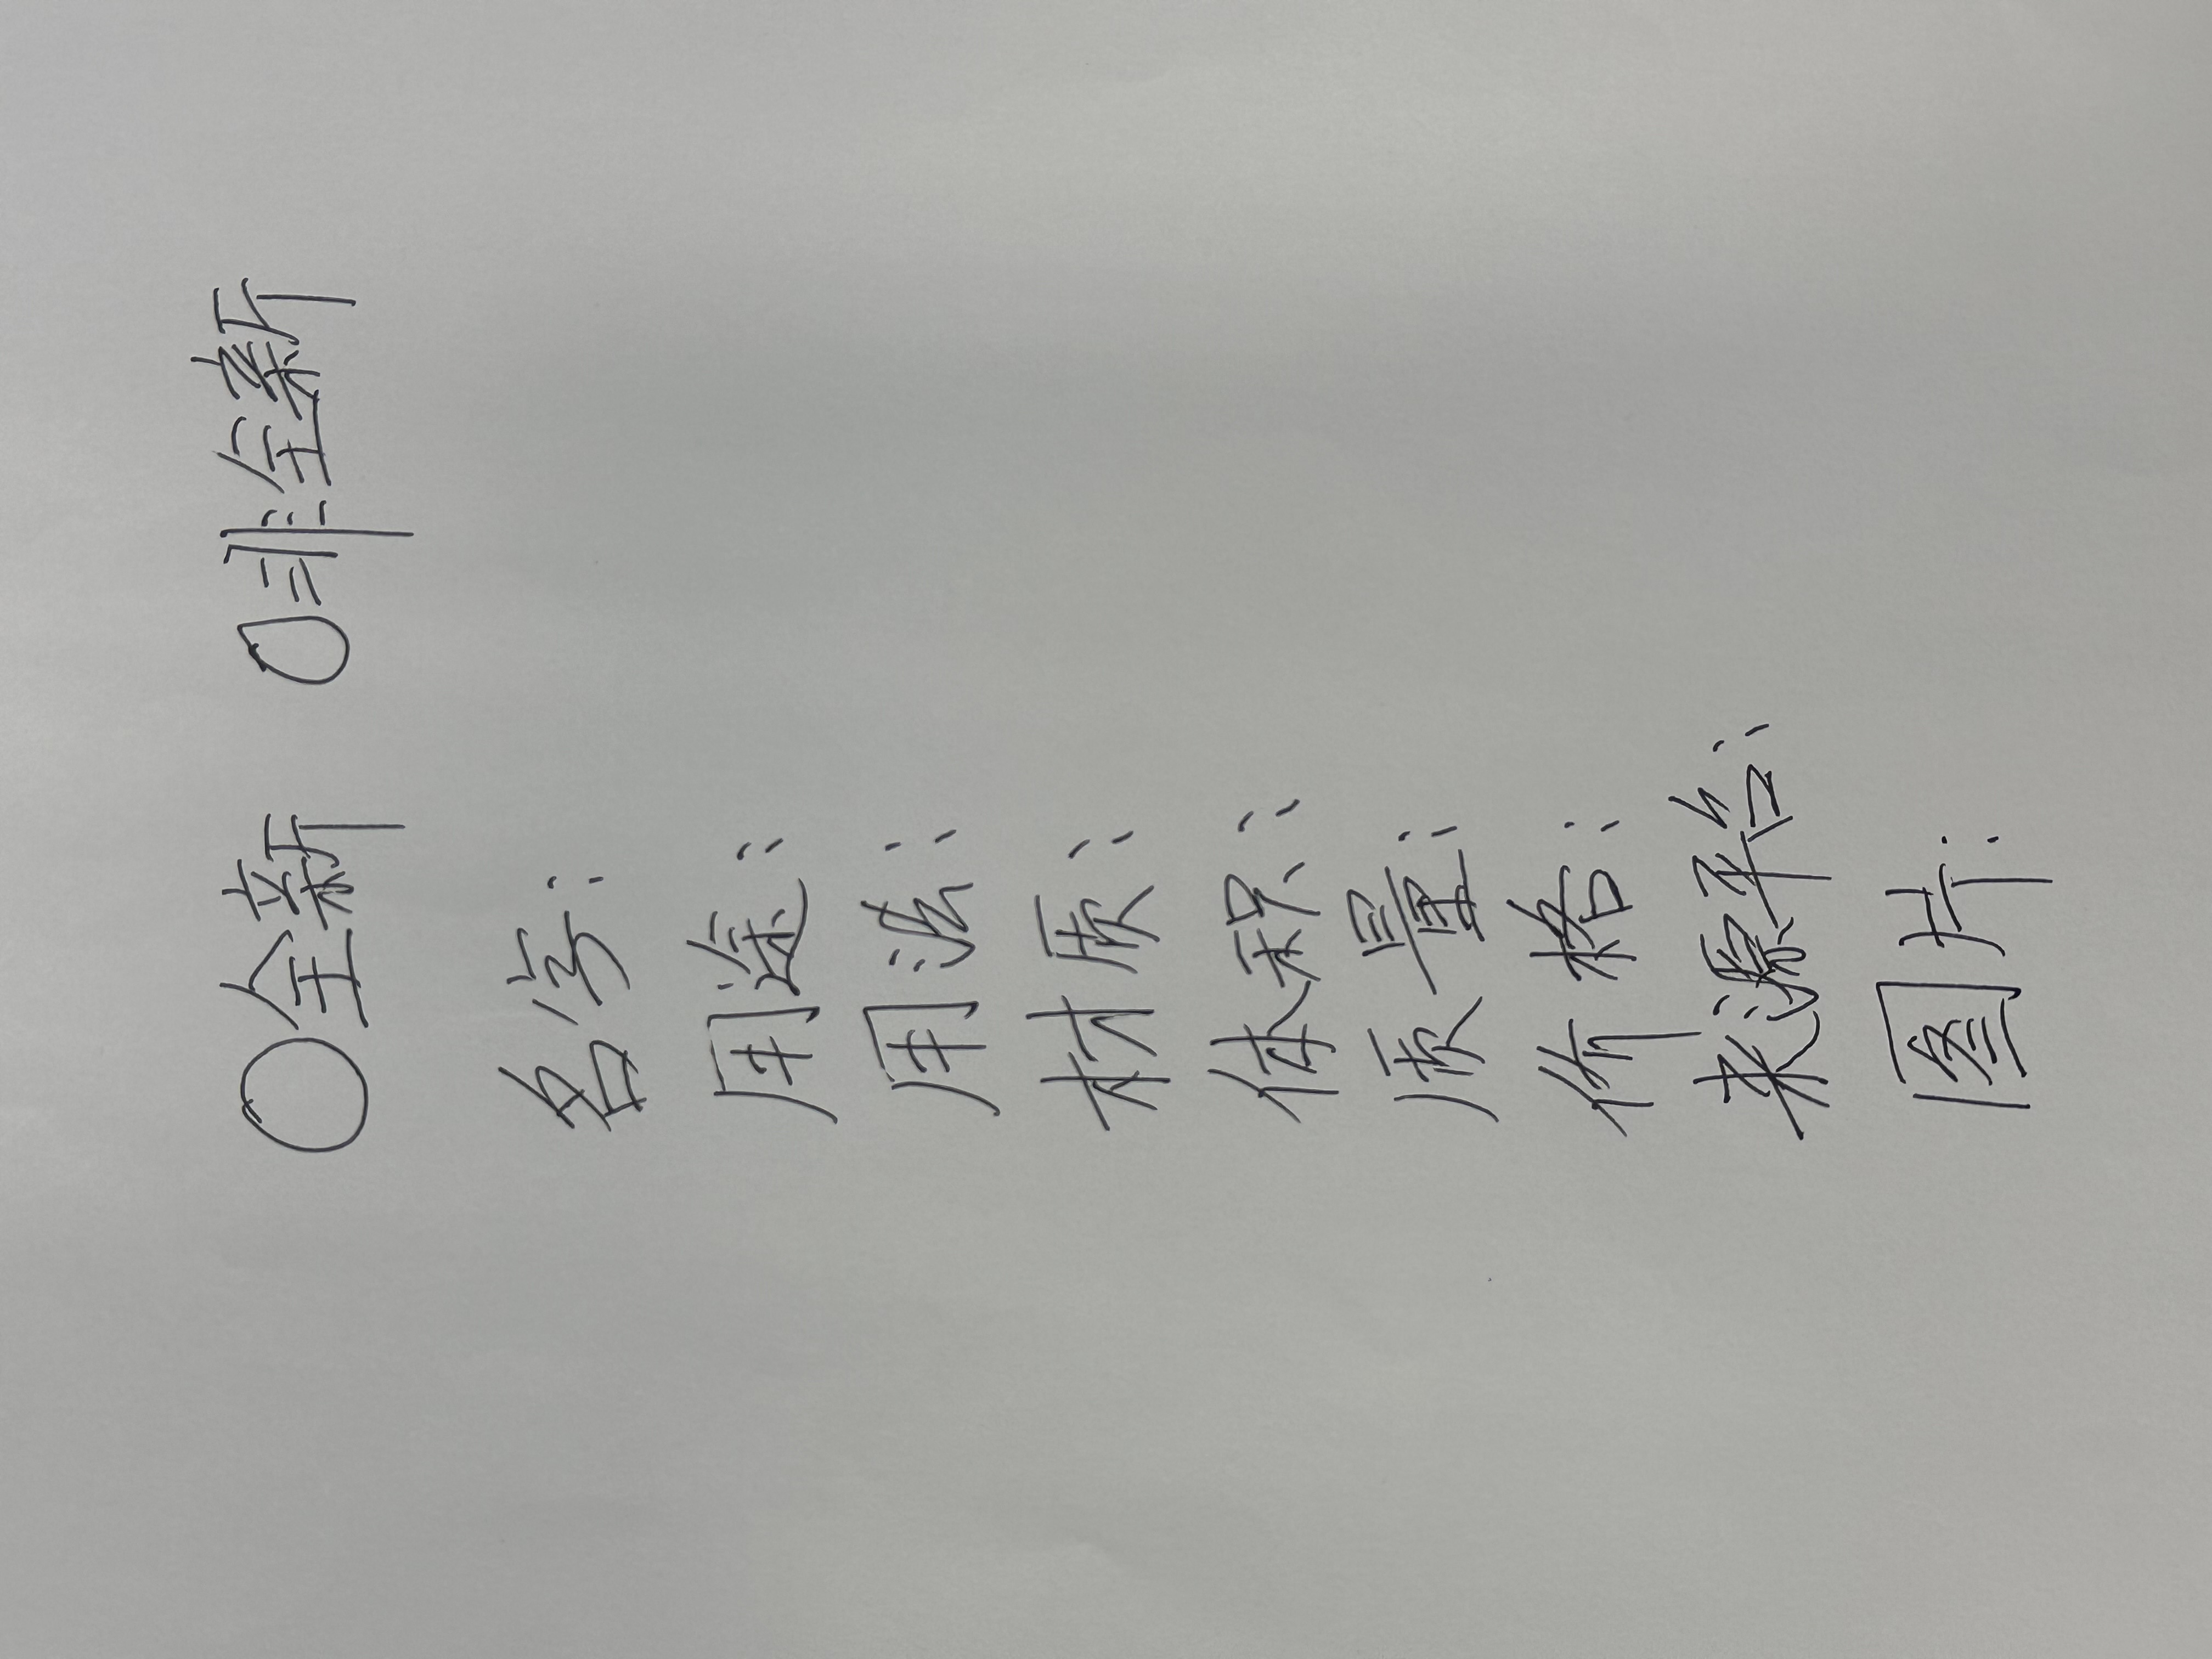 ○全新 ○非全新
名字:
用途:
用法:
材质:
体积:
质量:
价格:
来源平台:
图片: